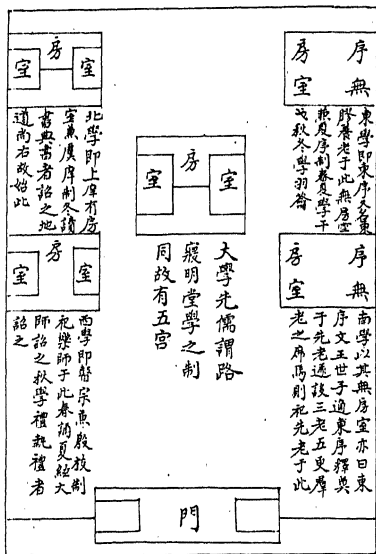 序無
房室
東學即東序又名東
膠養老于此無房室
兼夏序制春夏學干
戈秋冬學羽籥
序無
房室
南學以其無房室亦曰東
序文王世子適東序釋奠
于先老遂設三老五更羣
老之席焉則祀先老于此
房
室
室
大學先儒謂路
寢明堂學之制
同故有五宮
房
室
室
北學即上庠有房
室兼虞庠制冬讀
書典書者詔之地
道尚右故始此
房
室
室
西學即瞽宗兼殷校制
祀樂師于此春誦夏絃大
師詔之秋學禮執禮者
詔之
門